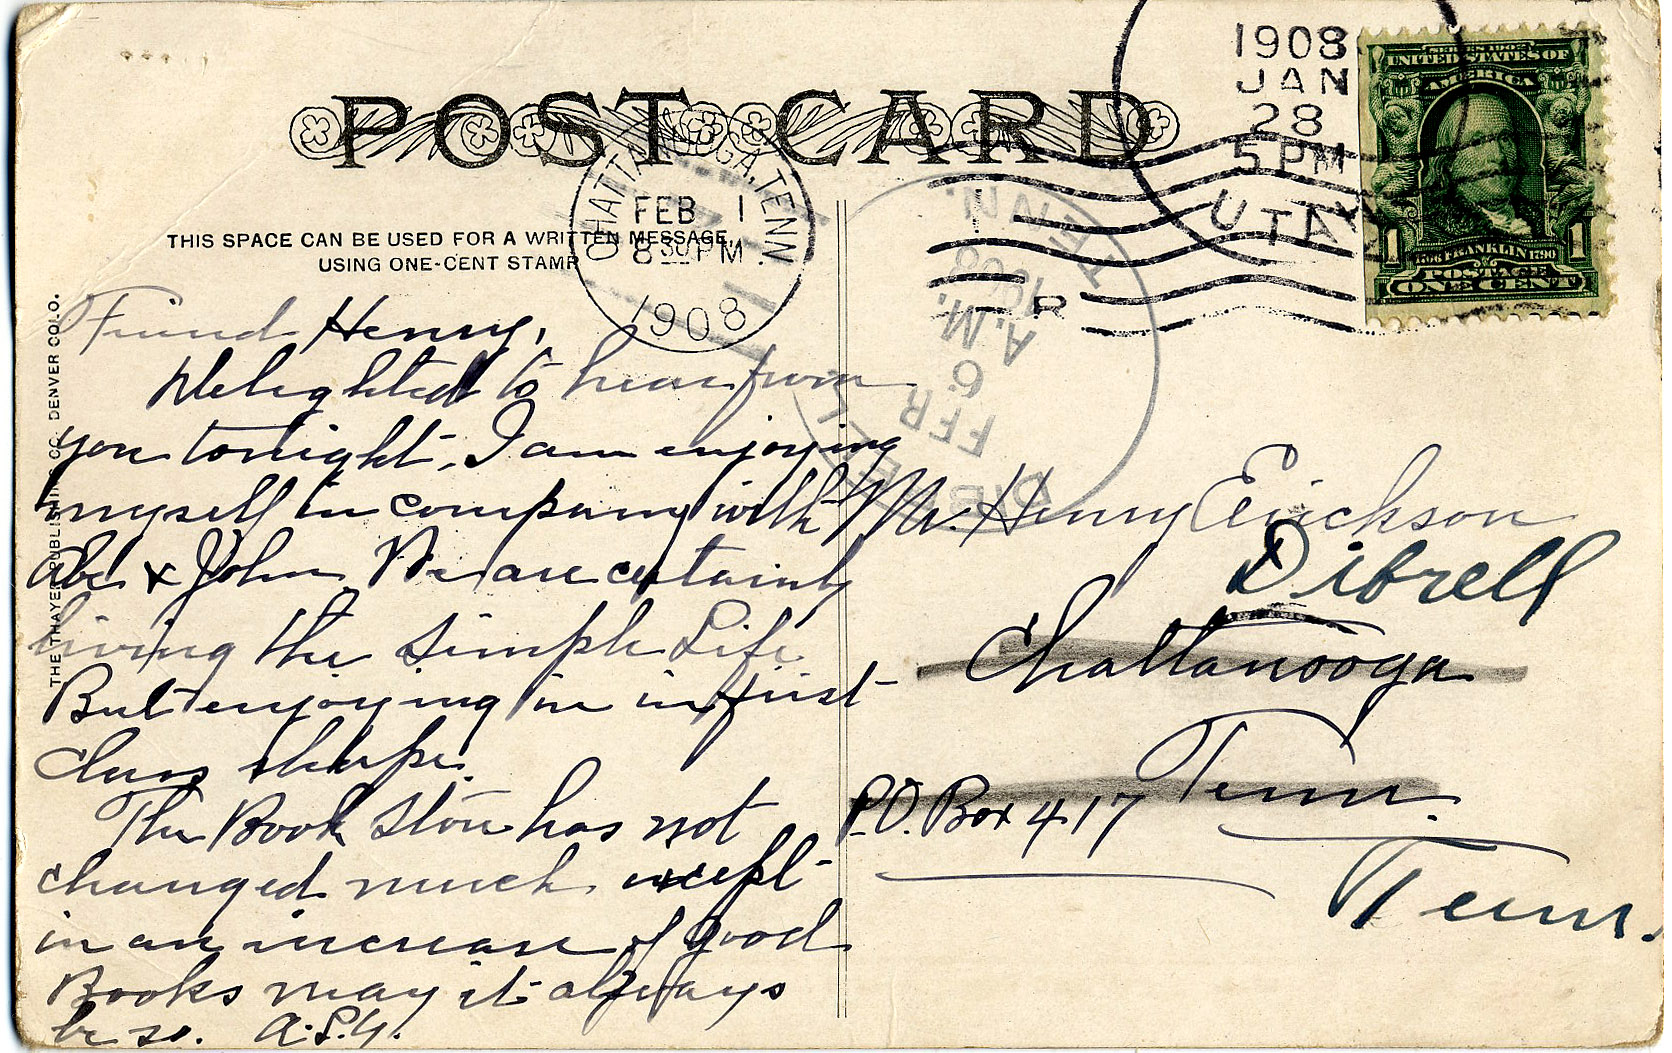 POST CARD
1908
JAN
28
5 PM
UTAH
UNITED STATES OF
AMERICA
1 FRANKLIN 1
POSTAGE
ONE CENT
CHATTANOOGA, TENN.
FEB 1
8 30 PM
1908
DIBRELL
TENN.
FEB
6
A.M.
1908
R
THIS SPACE CAN BE USED FOR A WRITTEN MESSAGE,
USING ONE-CENT STAMP
THE THAYER PUBLISHING CO. DENVER COLO.
Friend Henry,
Delighted to hear from
you tonight, I am enjoying
myself in company with
Abe & John. We are certainly
living the Simple Life
But enjoying in in first
Class shape.
The Book Store has not
changed much except
in an increase of good
Books may it always
be so. A.S.G.
Mr. Henry Erickson
Dibrell
Chattanooga
Tenn.
P.O. Box 417
Tenn.